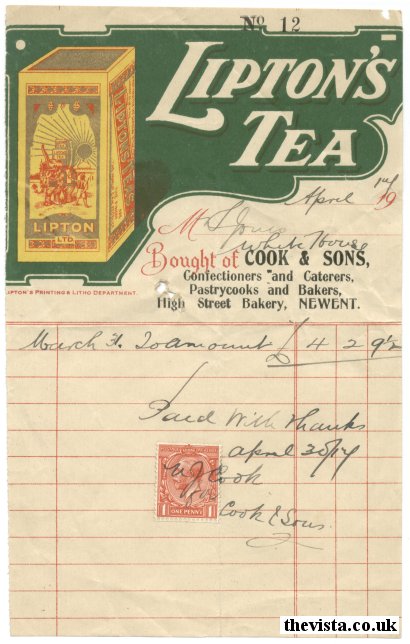 No 12
LIPTON'S
TEA
LIPTON
LTD
April 19
Mr Jones
White House
Bought of COOK & SONS,
Confectioners and Caterers,
Pastrycooks and Bakers,
High Street Bakery, NEWENT.
LIPTON'S PRINTING & LITHO DEPARTMENT.
March To amount £ 4 2 9½
Paid With thanks
April 30/17
Cook
Cook & Sons
1 ONE PENNY 1
thevista.co.uk